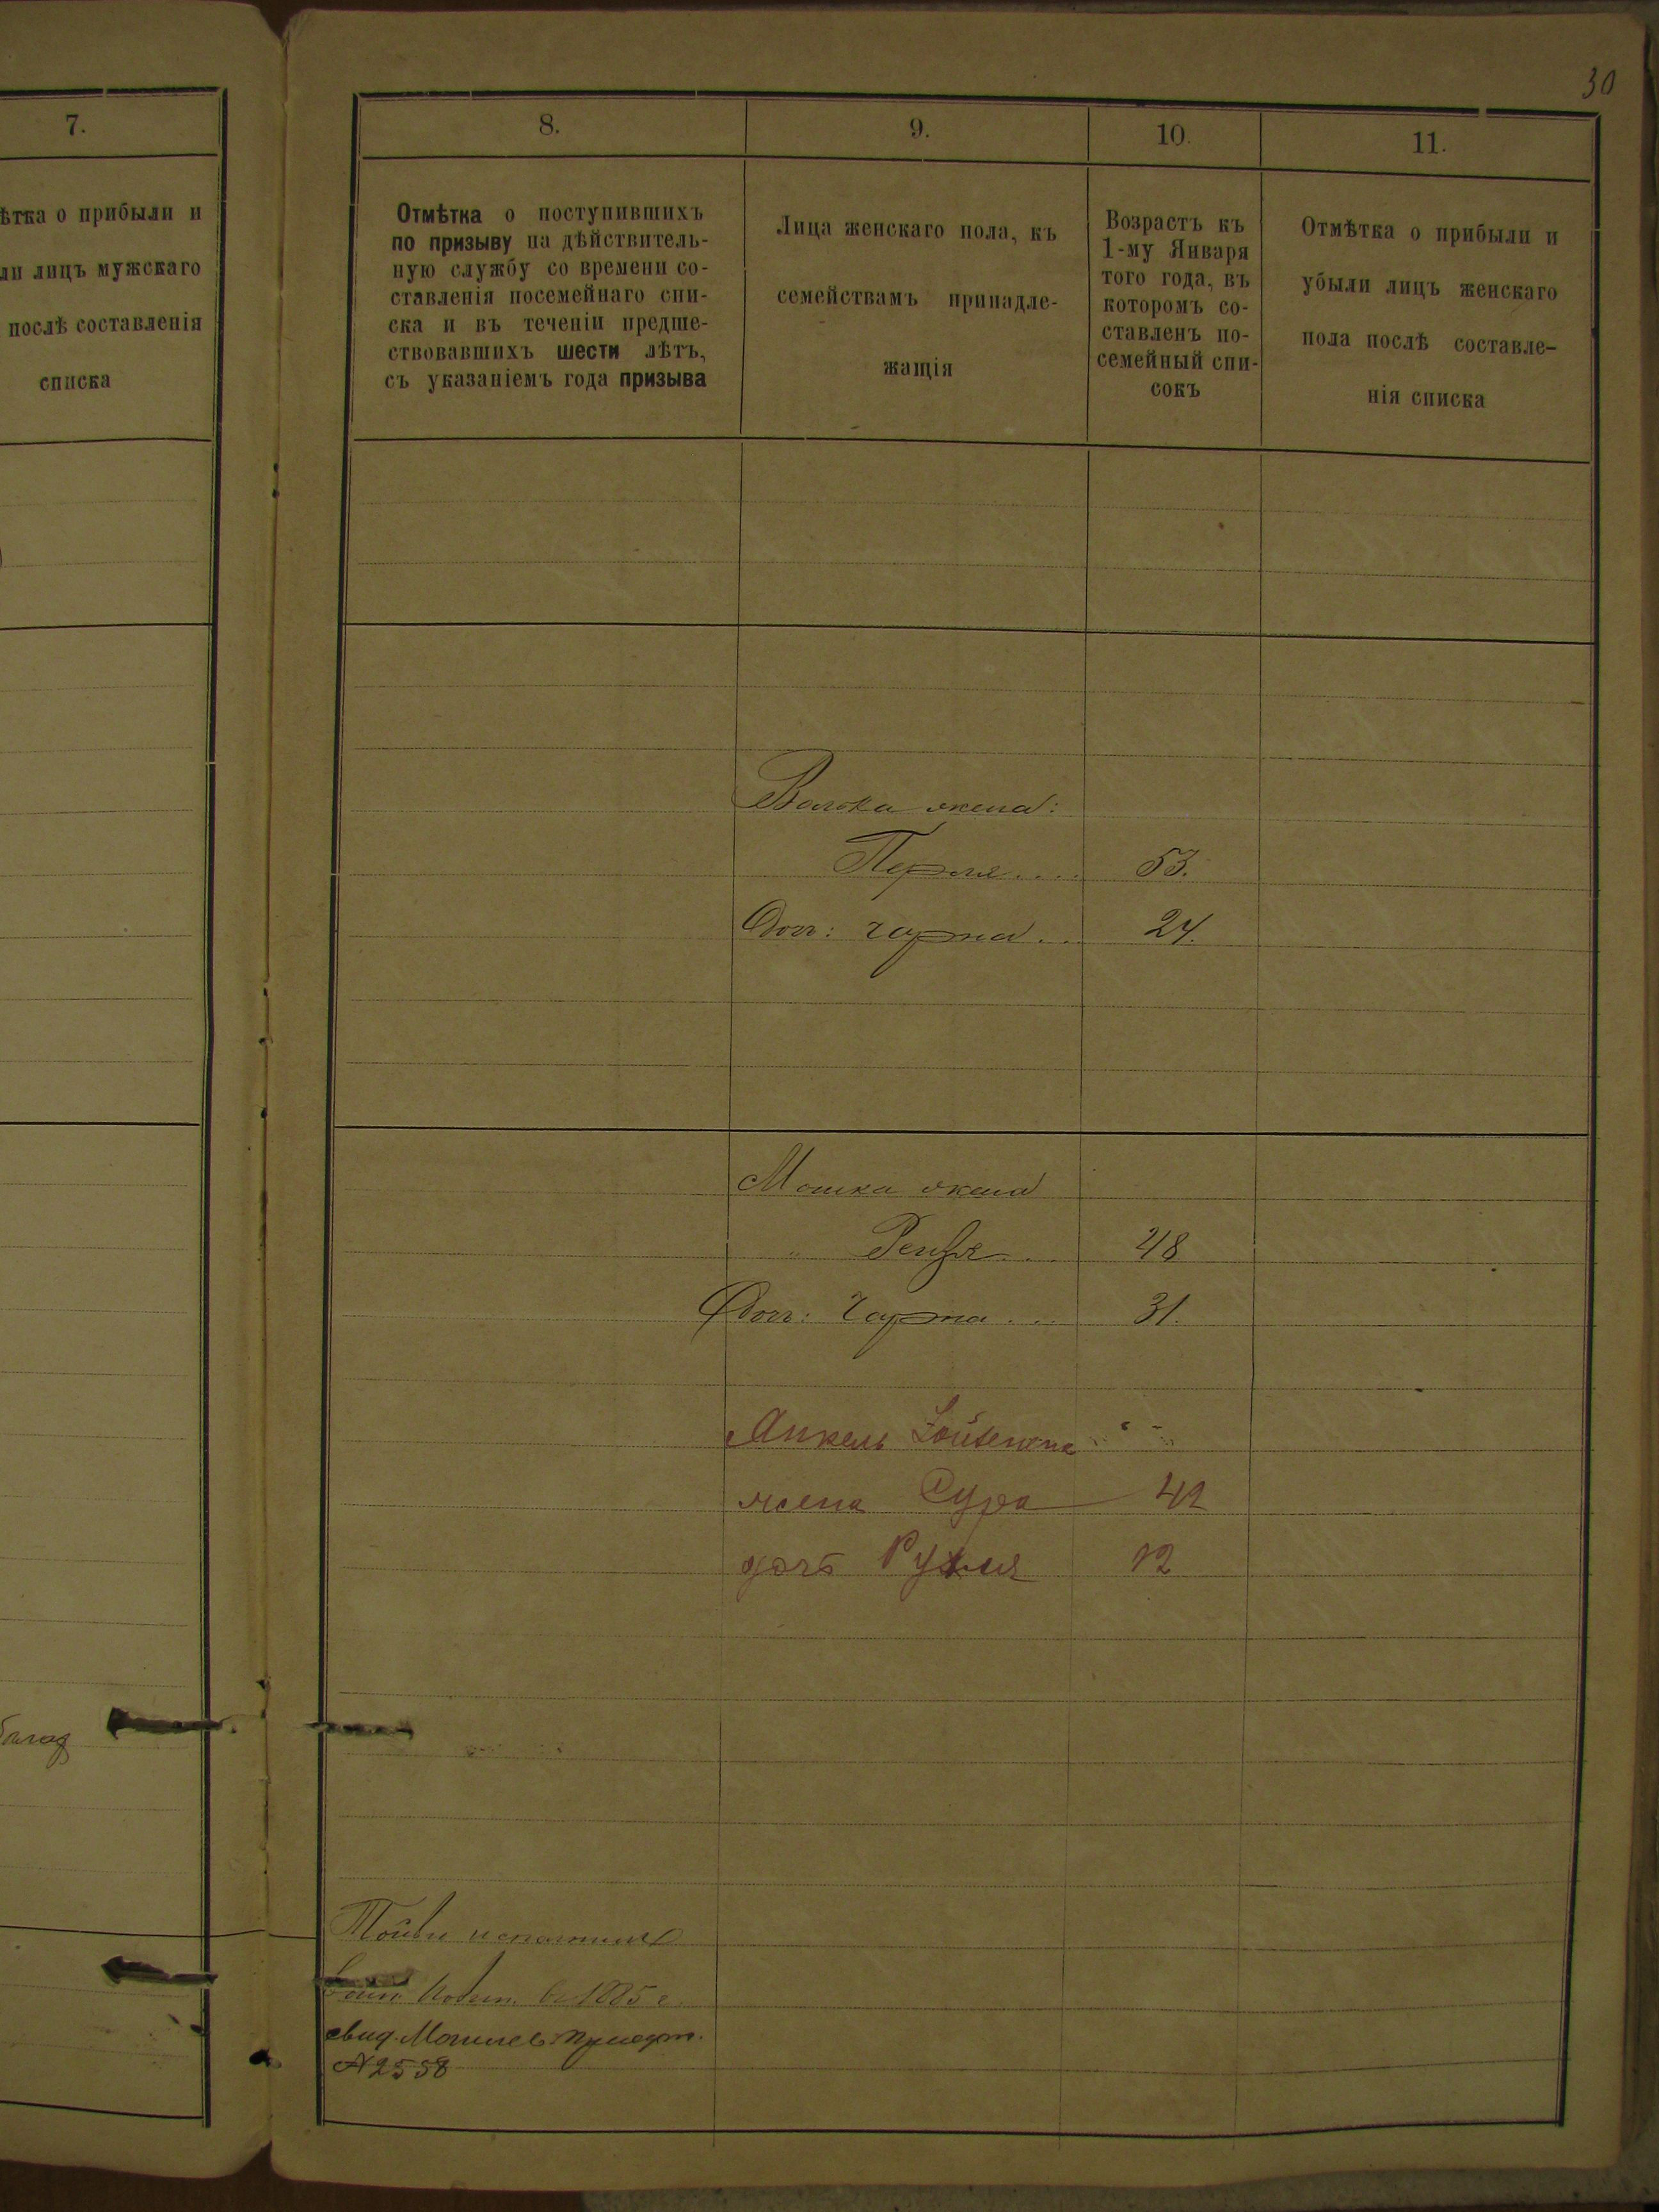 30
7.
ѣтка о прибыли и
ли лицъ мужскаго
послѣ составленія
списка
8.
Отмѣтка о поступившихъ
по призыву на дѣйствитель-
ную службу со времени со-
ставленія посемейнаго спи-
ска и въ теченіи предше-
ствовавшихъ шести лѣтъ,
съ указаніемъ года призыва
9.
Лица женскаго пола, къ
семействамъ принадле-
жащія
10.
Возрастъ къ
1-му Января
того года, въ
которомъ со-
ставленъ по-
семейный спи-
сокъ
11.
Отмѣтка о прибыли и
убыли лицъ женскаго
пола послѣ составле-
нія списка
жена:
Перля.... 53.
Доч: 24.
Мошка жена
48
Доч: 31.
жена Сура 42
дочь 12
1885 г
свид. Могилев.
№2558